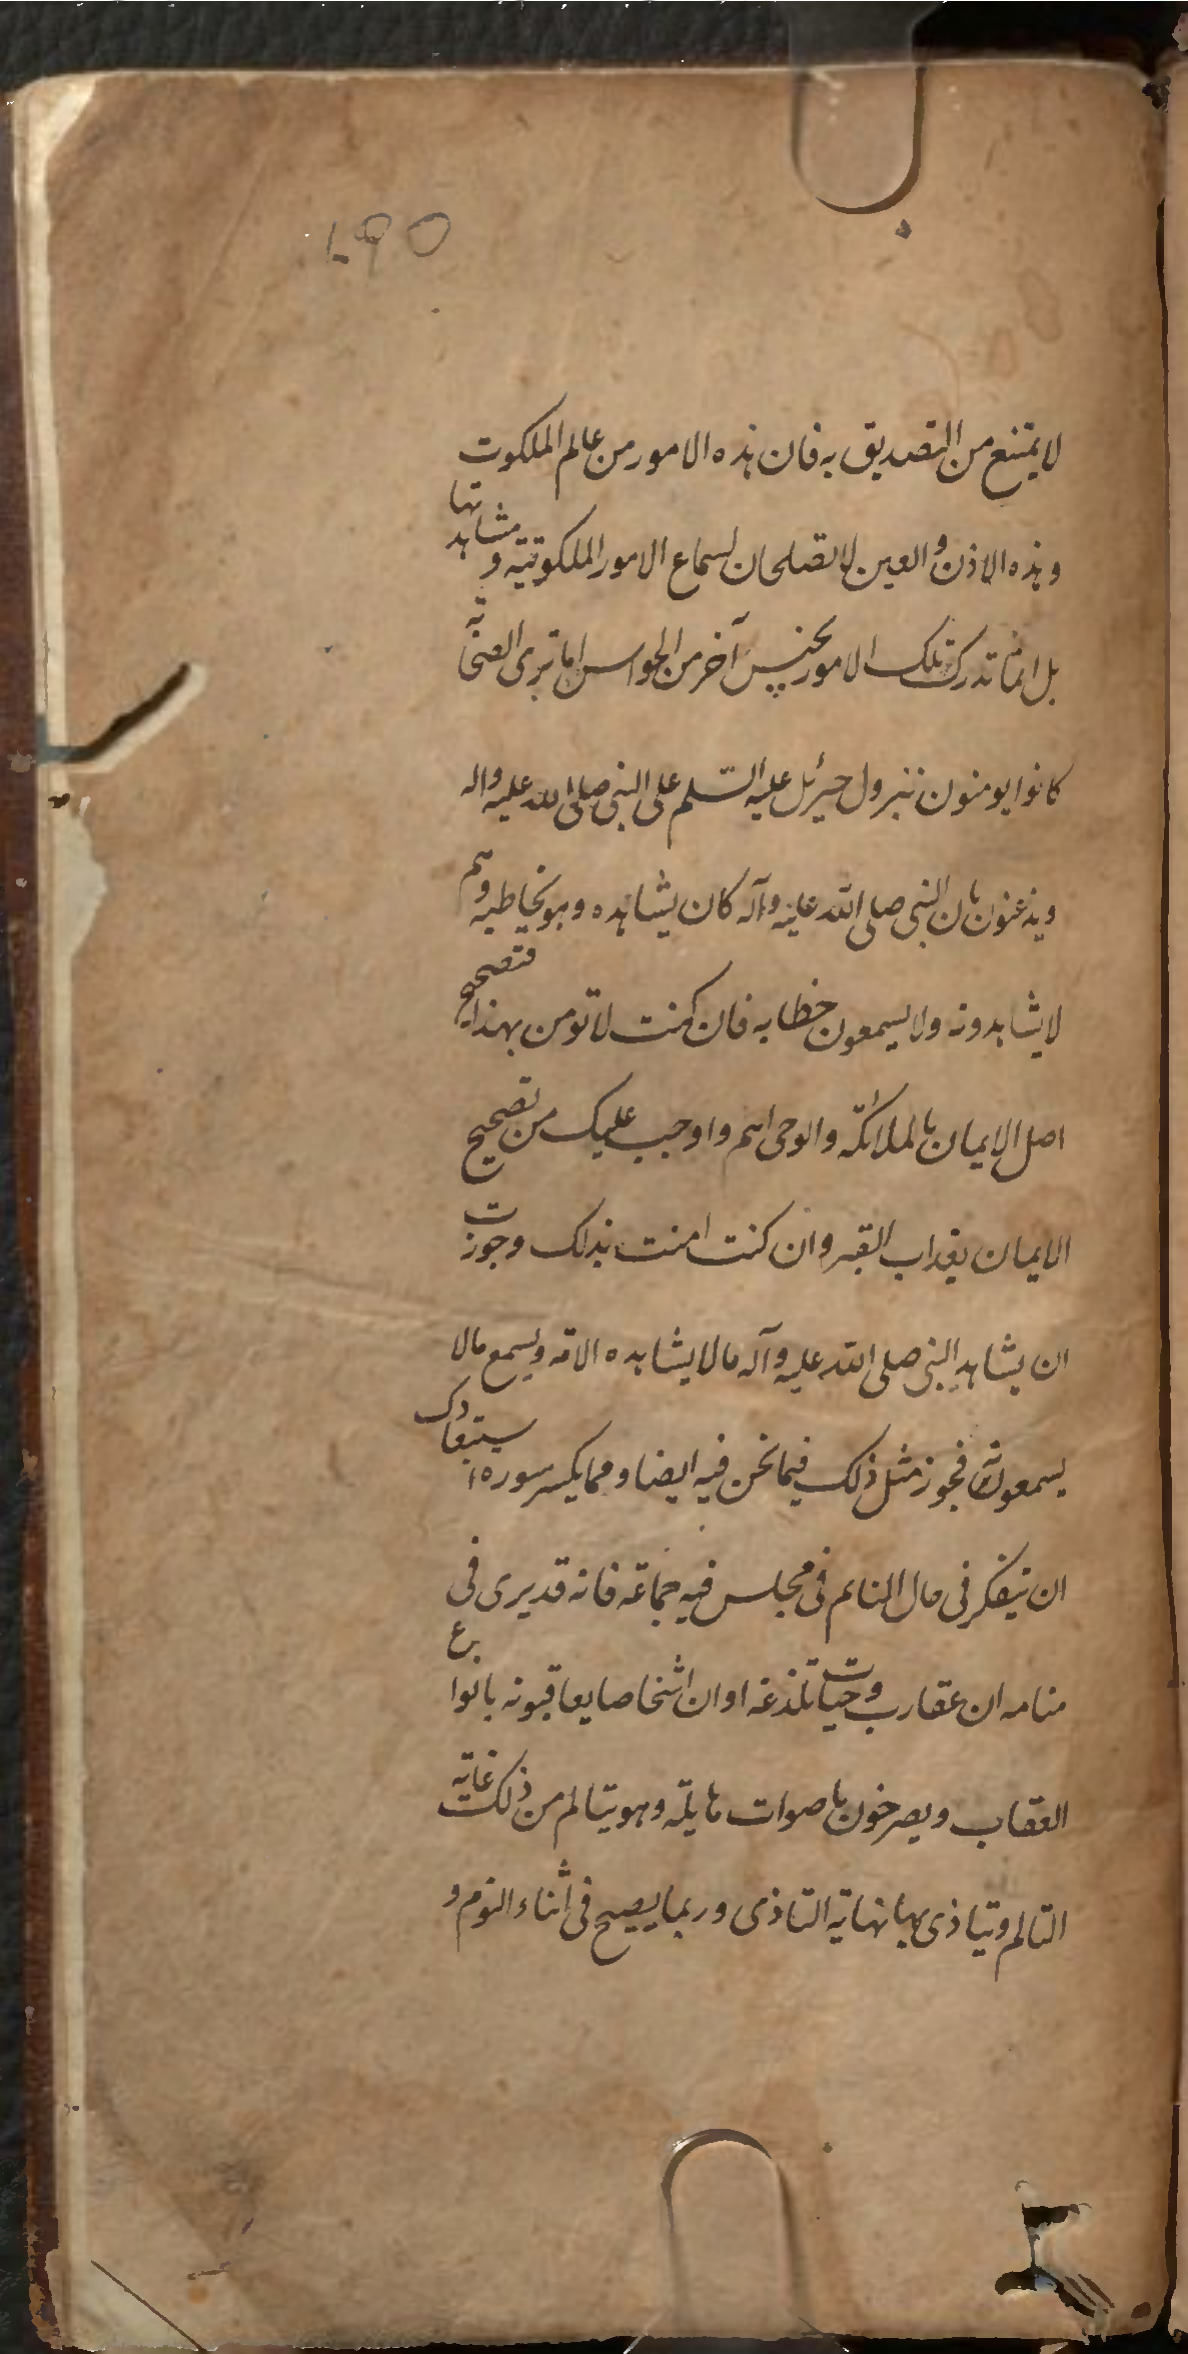 ٢٩٥
لا يمتنع من التصديق به فان هذه الامور من عالم الملكوت
وهذه الاذن والعين لا تصلحان لسماع الامور الملكوتية و مشاهدتها
بل انما تدرك تلك الامور بجنس آخر من الحواس اما ترى الصحابة
كانوا يومنون بنزول جبرئيل عليه السلم على النبى صلى الله عليه واله
ويذعنون بان النبى صلى الله عليه وآله كان يشاهده وهو يخاطبه وهم
لا يشاهدونه ولا يسمعون خطابه فان كنت لا تومن بهذا فتصحيح
اصل الايمان بالملائكة والوحى اهم واوجب عليك من تصحيح
الايمان بعذاب القبر وان كنت امنت بذلك وجوزت
ان يشاهد النبى صلى الله عليه وآله ما لا يشاهده الامة ويسمع مالا
يسمعونه فجوز مثل ذلك فيما نحن فيه ايضا ومما يكسر سورة استبعادك
ان يتفكر فى حال النائم فى مجلس فيه جماعة فانه قد يرى فى
منامه ان عقارب وحيات تلذغه او ان اشخاصا يعاقبونه بانواع
العقاب ويصرخون باصوات هايلة وهو يتالم من ذلك غاية
التالم ويتاذى بها نهاية التاذى وربما يصيح فى اثناء النوم و